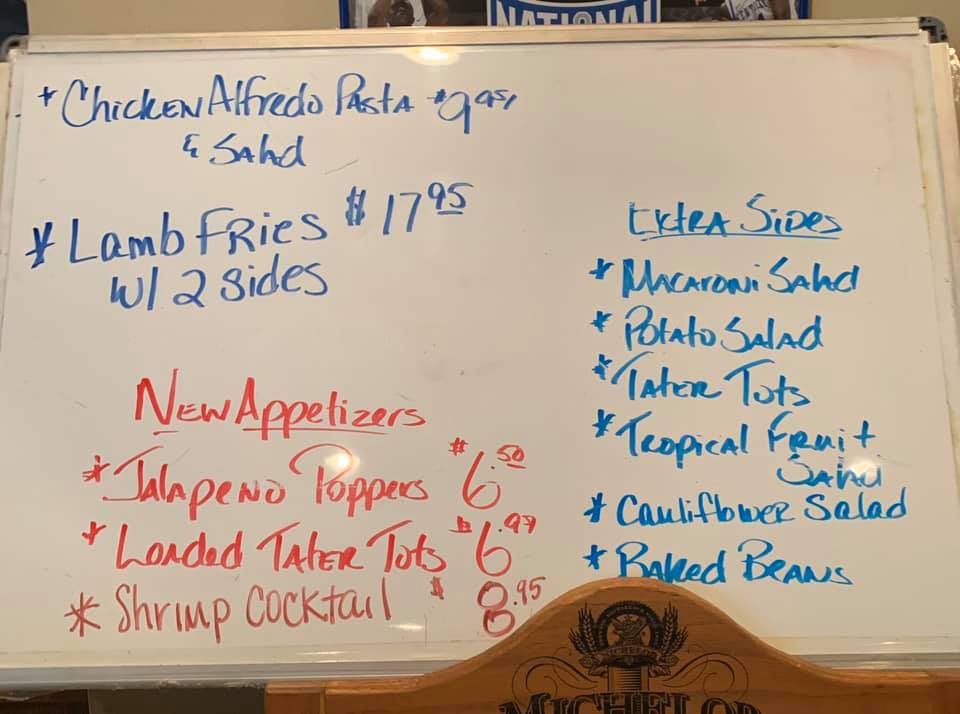 NATIONAL
* Chicken Alfredo Pasta $9.95
& Salad
* Lamb Fries $17.95
w/ 2 sides
New Appetizers
* Jalapeno Poppers $6.50
* Loaded Tater Tots $6.97
* Shrimp Cocktail $8.95
Extra Sides
* Macaroni Salad
* Potato Salad
* Tater Tots
* Tropical Fruit
Salad
* Cauliflower Salad
* Baked Beans
MICHELOB